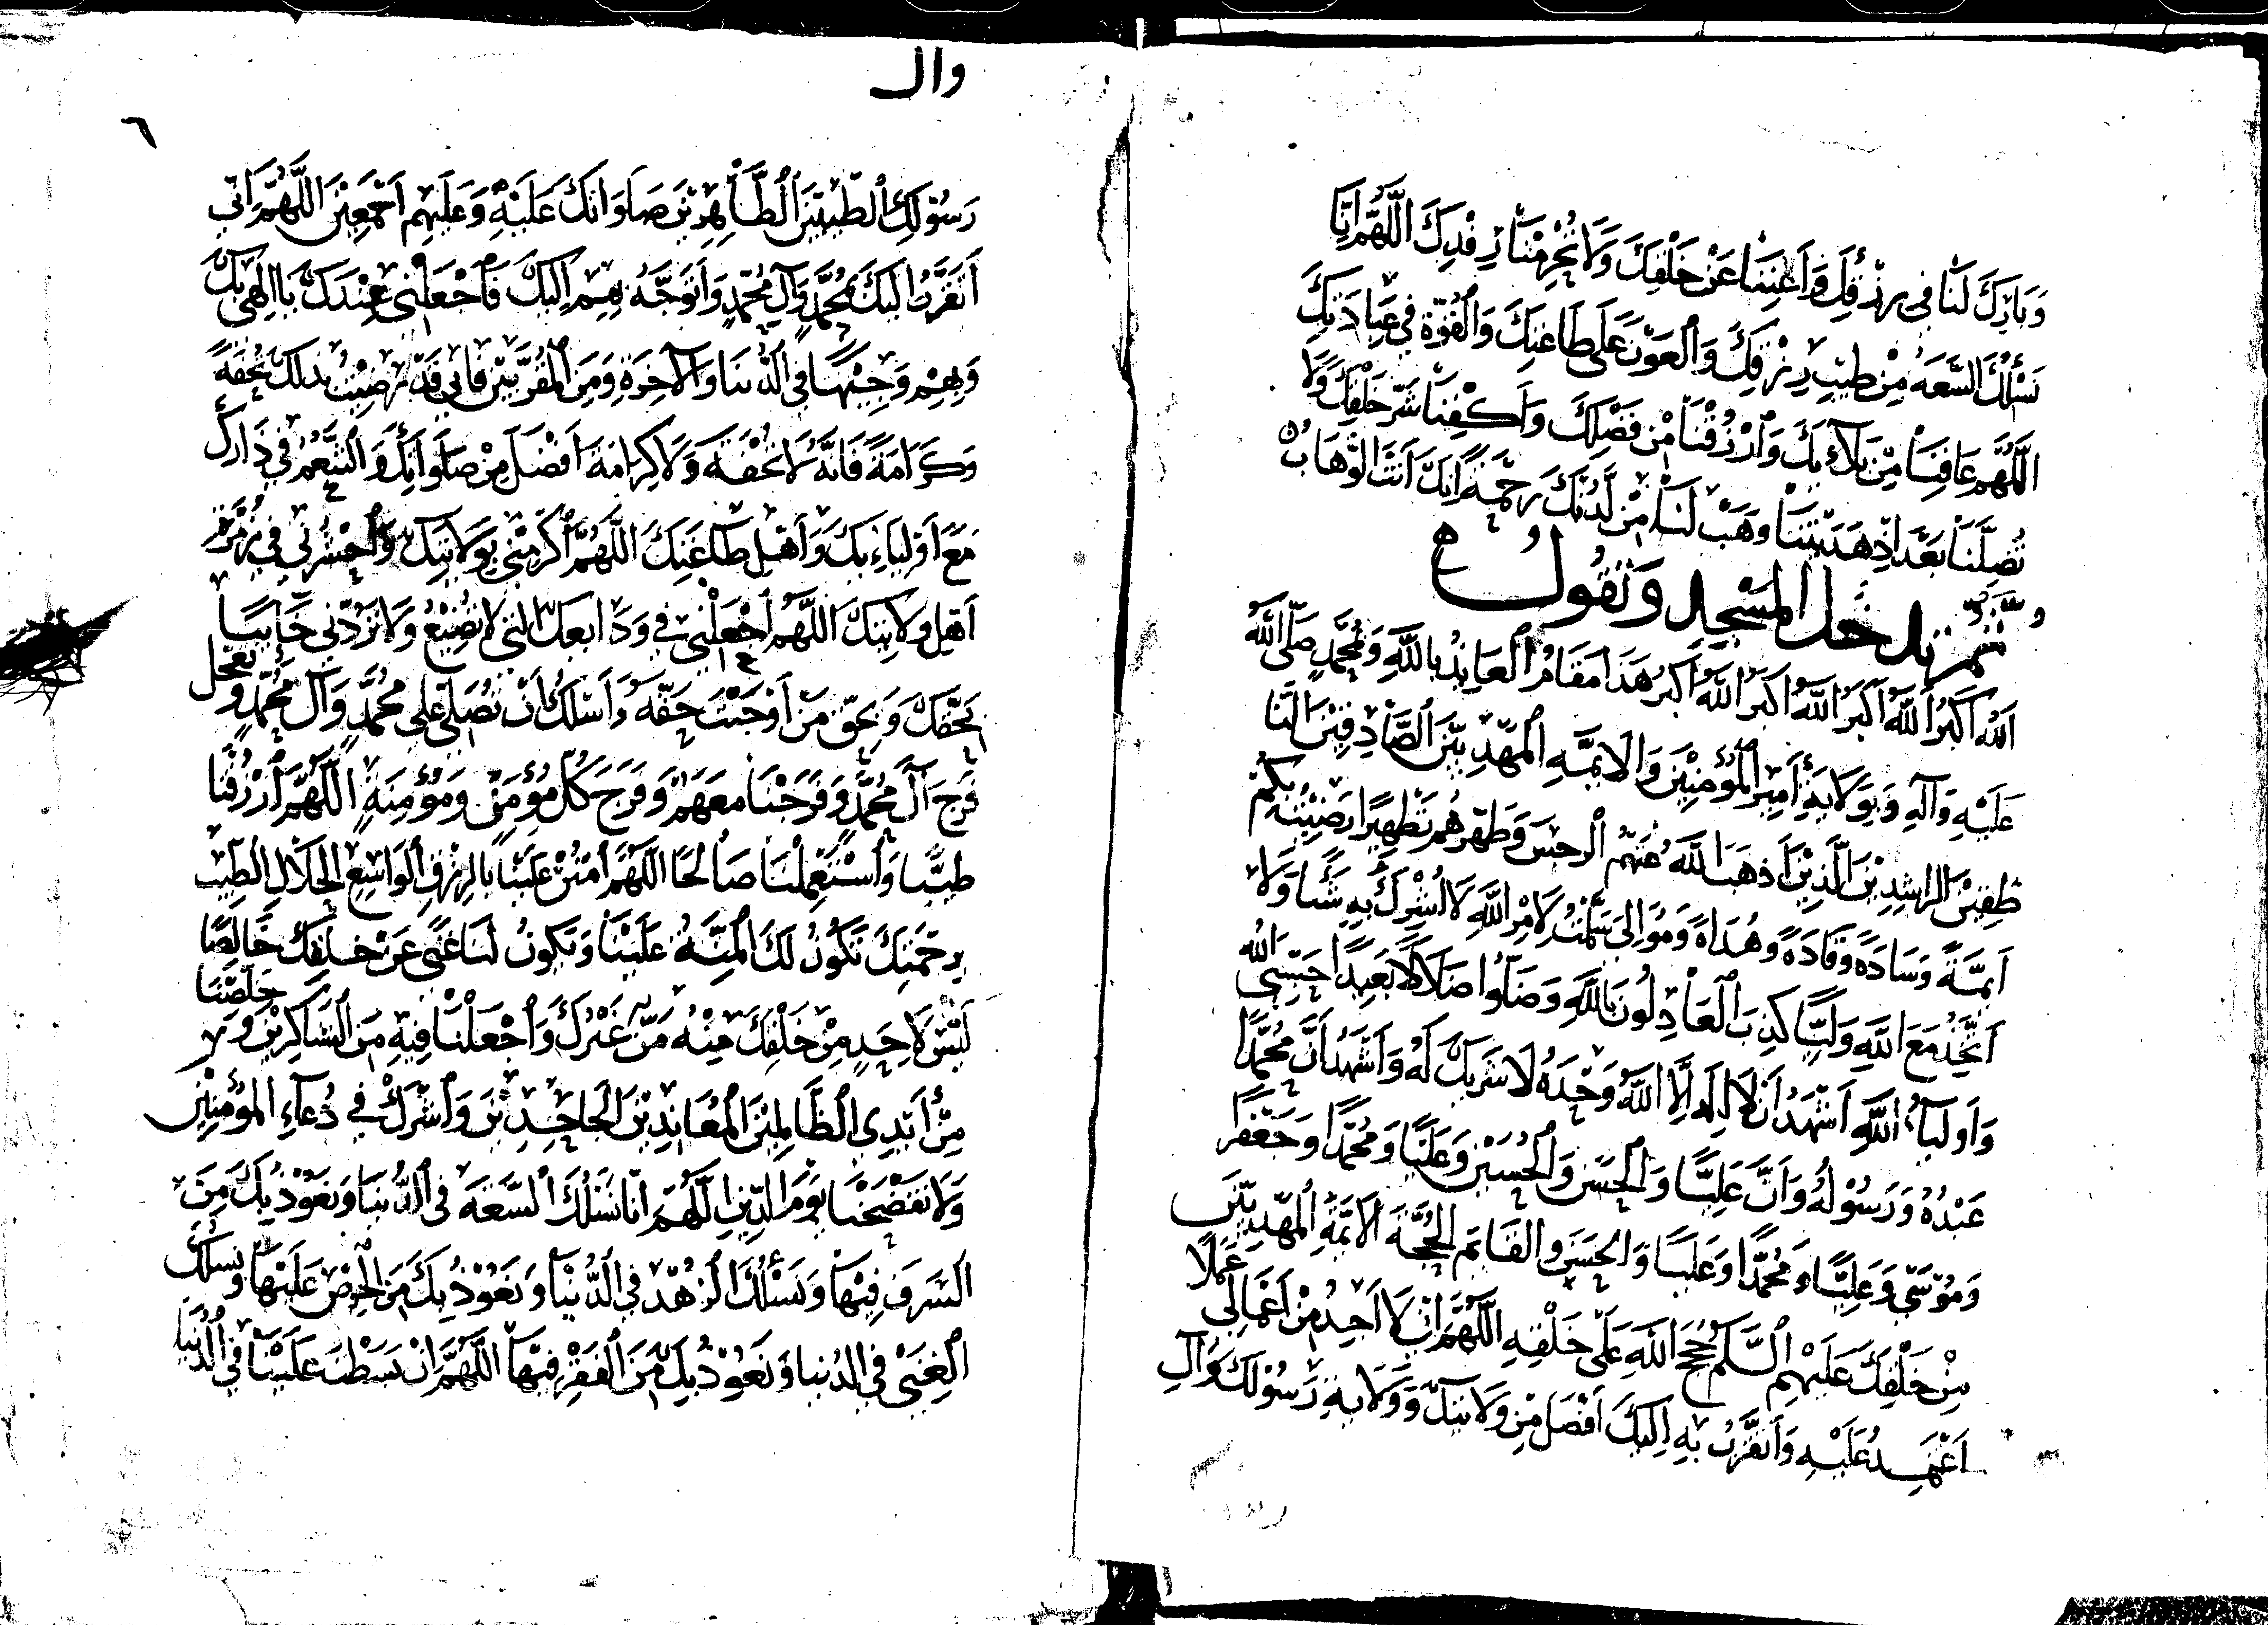 وَبَارِكْ لَنَا فِى رِزْقِكَ وَاَغْنِنَا عَنْ خَلْقِكَ وَلَا تَحْرِمْنَا رِفْدَكَ اَللّٰهُمَّ اِنَّا
نَسْئَلُكَ السَّعَةَ مِنْ طَيِّبِ رِزْقِكَ وَالْعَوْنَ عَلَى طَاعَتِكَ وَالْقُوَّةَ فِى عِبَادَتِكَ
اَللّٰهُمَّ عَافِنَا مِنْ بَلَائِكَ وَارْزُقْنَا مِنْ فَضْلِكَ وَاكْفِنَا شَرَّ خَلْقِكَ وَلَا
تُضِلَّنَا بَعْدَ اِذْ هَدَيْتَنَا وَهَبْ لَنَا مِنْ لَدُنْكَ رَحْمَةً اِنَّكَ اَنْتَ الْوَهَّابُ
ثم تدخل المسجد وتقول
اَللهُ اَكْبَرُ اَللهُ اَكْبَرُ اَللهُ اَكْبَرُ اَللهُ اَكْبَرُ هَذَا مَقَامُ الْعَائِذِ بِاللهِ وَمُحَمَّدٍ صَلَّى اللهُ
عَلَيْهِ وَآلِهِ وَبِوَلَايَةِ اَمِيرِ الْمُؤْمِنِيْنَ وَالْاَئِمَّةِ الْمَهْدِيِّيْنَ الصَّادِقِيْنَ النَّا
طِقِيْنَ الرَّاشِدِيْنَ الَّذِيْنَ اَذْهَبَ اللهُ عَنْهُمُ الرِّجْسَ وَطَهَّرَهُمْ تَطْهِيْرًا رَضِيْتُ بِكُمْ
اَئِمَّةً وَسَادَةً وَقَادَةً وَهُدَاةً وَمَوَالِىَ سَلَّمْتُ لِاَمْرِ اللهِ لَا اُشْرِكُ بِهِ شَيْئًا وَلَا
اَتَّخِذُ مَعَ اللهِ وَلِيًّا كَذِبَ الْعَادِلُونَ بِاللهِ وَضَلُّوا ضَلَالًا بَعِيْدًا حَسْبِىَ اللهُ
وَاَوْلِيَاءُ اللهِ اَشْهَدُ اَنْ لَا اِلٰهَ اِلَّا اللهُ وَحْدَهُ لَا شَرِيْكَ لَهُ وَاَشْهَدُ اَنَّ مُحَمَّدًا
عَبْدُهُ وَرَسُوْلُهُ وَاَنَّ عَلِيًّا وَالْحَسَنَ وَالْحُسَيْنَ وَعَلِيًّا وَمُحَمَّدًا وَجَعْفَرًا
وَمُوْسٰى وَعَلِيًّا وَمُحَمَّدًا وَعَلِيًّا وَالْحَسَنَ وَالْقَائِمَ الْحُجَّةَ الْاَئِمَّةَ الْمَهْدِيِّيْنَ
مِنْ خَلْقِكَ عَلَيْهِمُ السَّلَمُ حُجَجُ اللهِ عَلَى خَلْقِهِ اَللّٰهُمَّ اِنِّى لَا اَجِدُ مِنْ اَعْمَالِى عَمَلًا
اَعْتَمِدُ عَلَيْهِ وَاَتَقَرَّبُ بِهِ اِلَيْكَ اَفْضَلَ مِنْ وَلَايَتِكَ وَوَلَايَةِ رَسُوْلِكَ وَآلِ
وال
٦
رَسُوْلِكَ الطَّيِّبِيْنَ الطَّاهِرِيْنَ صَلَوَاتُكَ عَلَيْهِ وَعَلَيْهِمْ اَجْمَعِيْنَ اَللّٰهُمَّ اِنِّى
اَتَقَرَّبُ اِلَيْكَ بِمُحَمَّدٍ وَآلِ مُحَمَّدٍ وَاَتَوَجَّهُ بِهِمْ اِلَيْكَ فَاجْعَلْنِى عِنْدَكَ يَا اِلٰهِى بِكَ
وَبِهِمْ وَجِيْهًا فِى الدُّنْيَا وَالْآخِرَةِ وَمِنَ الْمُقَرَّبِيْنَ فَاِنِّى قَدْ رَضِيْتُ بِذٰلِكَ تُحْفَةً
وَكَرَامَةً فَاِنَّهُ لَا تُحْفَةَ وَلَا كَرَامَةَ اَفْضَلَ مِنْ صَلَوَاتِكَ وَالتَّنَعُّمِ فِى دَارِكَ
مَعَ اَوْلِيَائِكَ وَاَهْلِ طَاعَتِكَ اَللّٰهُمَّ اَكْرِمْنِى بِوَلَايَتِكَ وَاحْشُرْنِى فِى زُمْرَةِ
اَهْلِ وَلَايَتِكَ اَللّٰهُمَّ اجْعَلْنِى فِى وَدَائِعِكَ الَّتِى لَا تَضِيْعُ وَلَا تَرُدَّنِى خَائِبًا
بِحَقِّكَ وَبِحَقِّ مَنْ اَوْجَبْتَ حَقَّهُ وَاَسْئَلُكَ اَنْ تُصَلِّىَ عَلَى مُحَمَّدٍ وَآلِ مُحَمَّدٍ وَتُعَجِّلَ
فَرَجَ آلِ مُحَمَّدٍ وَفَرَجَنَا مَعَهُمْ وَفَرَجَ كُلِّ مُؤْمِنٍ وَمُؤْمِنَةٍ اَللّٰهُمَّ ارْزُقْنَا
طَيِّبًا وَاسْتَعْمِلْنَا صَالِحًا اَللّٰهُمَّ امْنُنْ عَلَيْنَا بِالرِّزْقِ الْوَاسِعِ الْحَلَالِ الطَّيِّبِ
بِرَحْمَتِكَ تَكُوْنُ لَكَ الْمِنَّةُ عَلَيْنَا وَتَكُوْنُ لَنَا غِنًى عَنْ خَلْقِكَ خَالِصًا
لَيْسَ لِاَحَدٍ مِنْ خَلْقِكَ مِنْهُ مَنٌّ غَيْرَكَ وَاجْعَلْنَا فِيْهِ مِنَ الشَّاكِرِيْنَ وَخَلِّصْنَا
مِنْ اَيْدِى الظَّالِمِيْنَ الْمُعَانِدِيْنَ الْجَاحِدِيْنَ وَاَشْرِكْ فِى دُعَاءِ الْمُؤْمِنِيْنَ
وَلَا تَفْضَحْنَا يَوْمَ الدِّيْنِ اَللّٰهُمَّ اِنَّا نَسْئَلُكَ السَّعَةَ فِى الدُّنْيَا وَنَعُوْذُ بِكَ مِنَ
السَّرَفِ فِيْهَا وَنَسْئَلُكَ الزُّهْدَ فِى الدُّنْيَا وَنَعُوْذُ بِكَ مِنَ الْحِرْصِ عَلَيْهَا وَنَسْئَلُكَ
الْغِنٰى فِى الدُّنْيَا وَنَعُوْذُ بِكَ مِنَ الْفَقْرِ فِيْهَا اَللّٰهُمَّ اِنْ بَسَطْتَ عَلَيْنَا فِى الدُّنْيَا